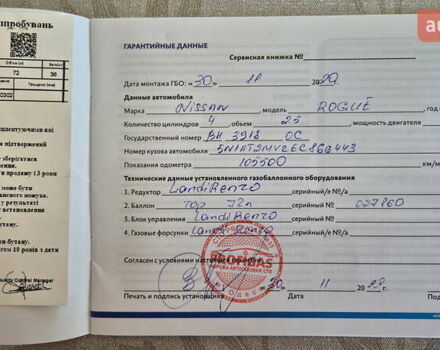 пробувань
72
36
ГАРАНТИЙНЫЕ ДАННЫЕ
Сервисная книжка №
Дата монтажа ГБО: "30" 11 2020.
Данные автомобиля
Марка Nissan, модель ROGUE, год
Количество цилиндров 4, объем 25, мощность двигателя
Государственный номер ВН 3918 ОС
Номер кузова автомобиля 5N1AT2MV2EC866443
Показания одометра 105500 км/м
Технические данные установленного газобаллонного оборудования
1. Редуктор LandiRenzo серийный/е №/а
2. Баллон Тор 72л серийный/е №/а 027860
3. Блок управления LandiRenzo серийный/е №/а
4. Газовые форсунки LandiRenzo серийный/е №/а
Согласен с условиями настоящей гарантии
PROFIGAS
МЕРЕЖА АВТОГАЗОВИХ СТО
"30" 11 20
Печать и подпись установщика
Дата
Подпись
підтверджений
зберігатися
продажу 13 роки
може бути
результаті
встановлення
бутану.
ом 10 років з дати
Quality Control Manager